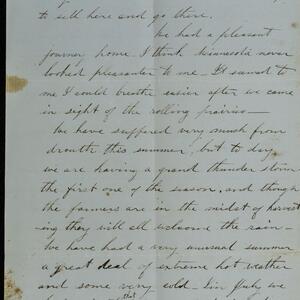 to sell here and go there.
We had a pleasant
journey home. I think Minnesota never
looked pleasanter to me — It seemed to
me I could breathe easier after we came
in sight of the rolling prairies —
We have suffered very much from
drouth this summer, but to day
we are having a grand thunder storm
the first one of the season, and though
the farmers are in the midst of harvest
-ing they will all welcome the rain —
We have had a very unusual summer
a great deal of extreme hot weather
and some very cold — In July we
that